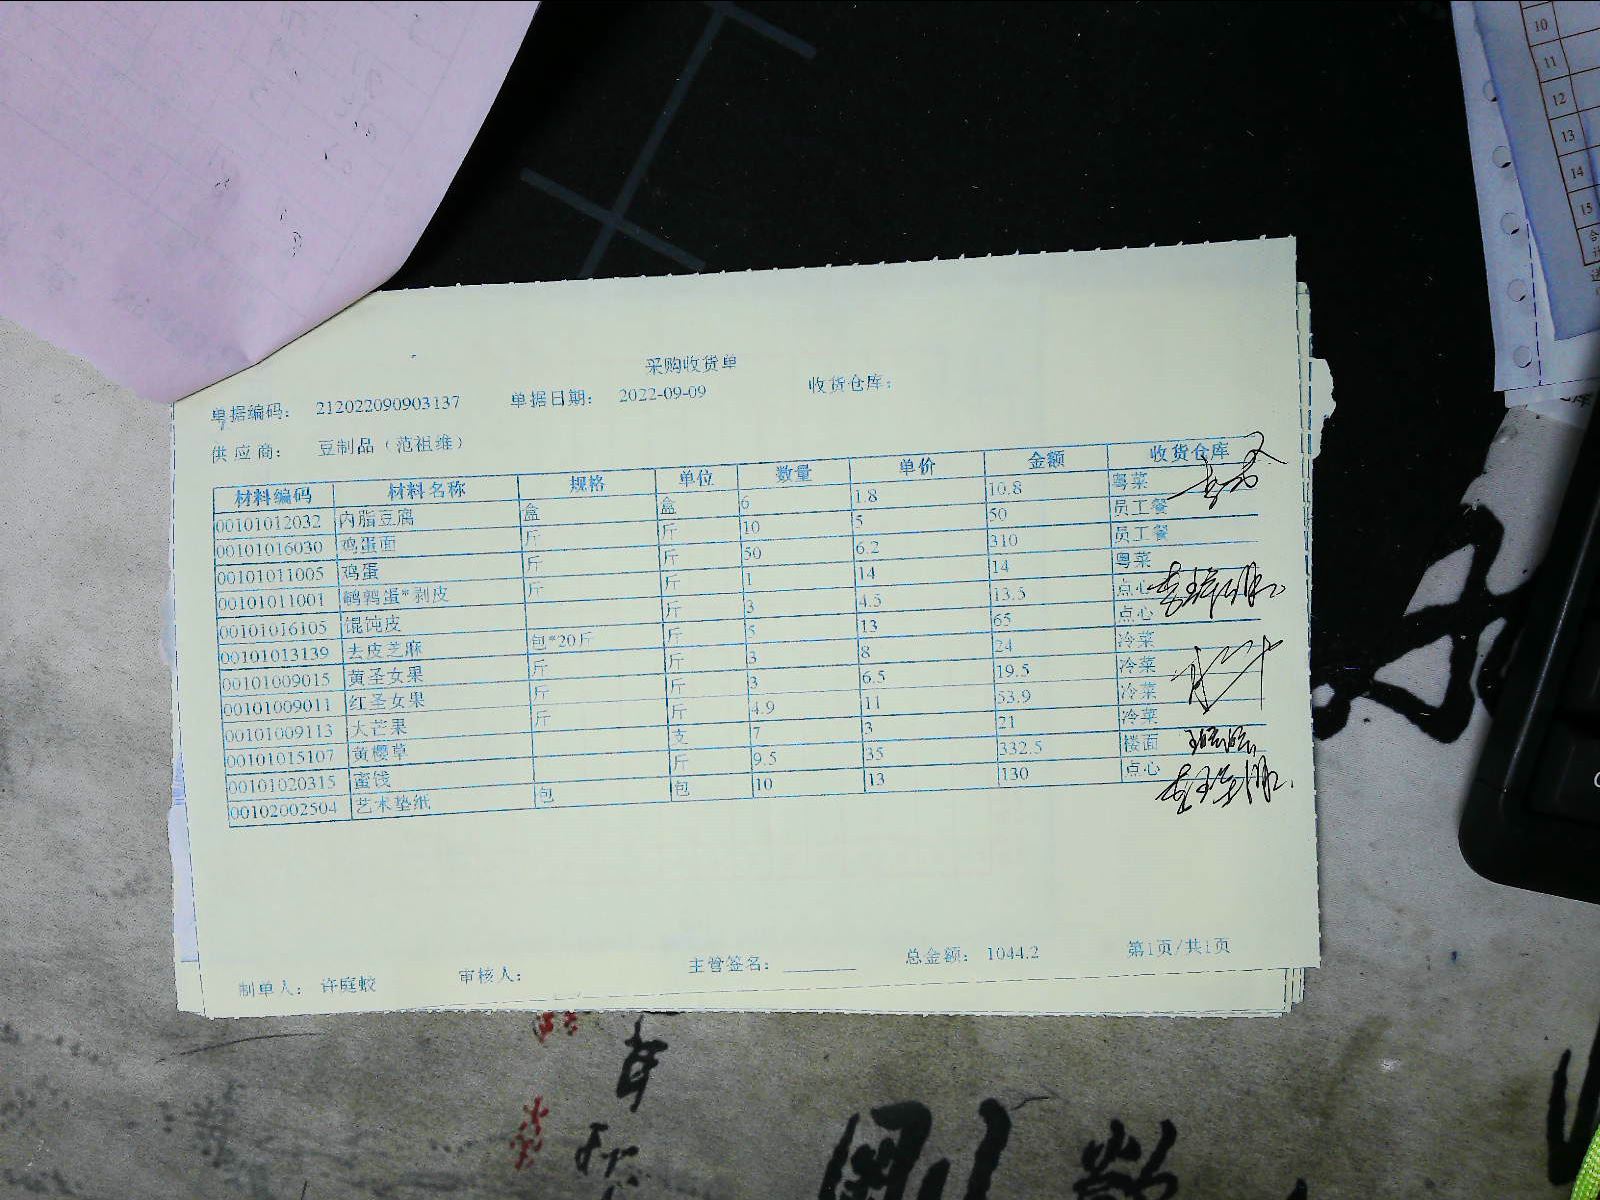 采购收货单
单据编码： 212022090903137 单据日期： 2022-09-09 收货仓库：
供应商： 豆制品（范祖维）
材料编码 材料名称 规格 单位 数量 单价 金额 收货仓库
00101012032 内脂豆腐 盒 盒 6 1.8 10.8 粤菜
00101016030 鸡蛋面 斤 斤 10 5 50 员工餐
00101011005 鸡蛋 斤 斤 50 6.2 310 员工餐
00101011001 鹌鹑蛋*剥皮 斤 斤 1 14 14 粤菜
00101016105 馄饨皮 斤 3 4.5 13.5 点心
00101013139 去皮芝麻 包*20斤 斤 5 13 65 点心
00101009015 黄圣女果 斤 斤 3 8 24 冷菜
00101009011 红圣女果 斤 斤 3 6.5 19.5 冷菜
00101009113 大芒果 斤 斤 4.9 11 53.9 冷菜
00101015107 黄樱草 支 7 3 21 冷菜
00101020315 蜜饯 斤 9.5 35 332.5 楼面
00102002504 艺术垫纸 包 包 10 13 130 点心
制单人： 许庭蛟 审核人： 主管签名： 总金额： 1044.2 第1页/共1页
10
11
12
13
14
15